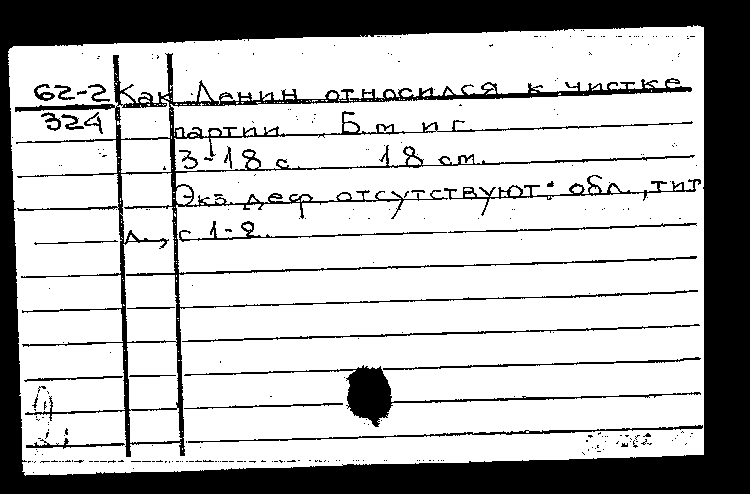 62-2 Как Ленин относился к чистке
324 партии Б. м. и г.
3-18 с. 18 см.
Экз. деф. отсутствуют: обл., тит.
л., с 1-2.